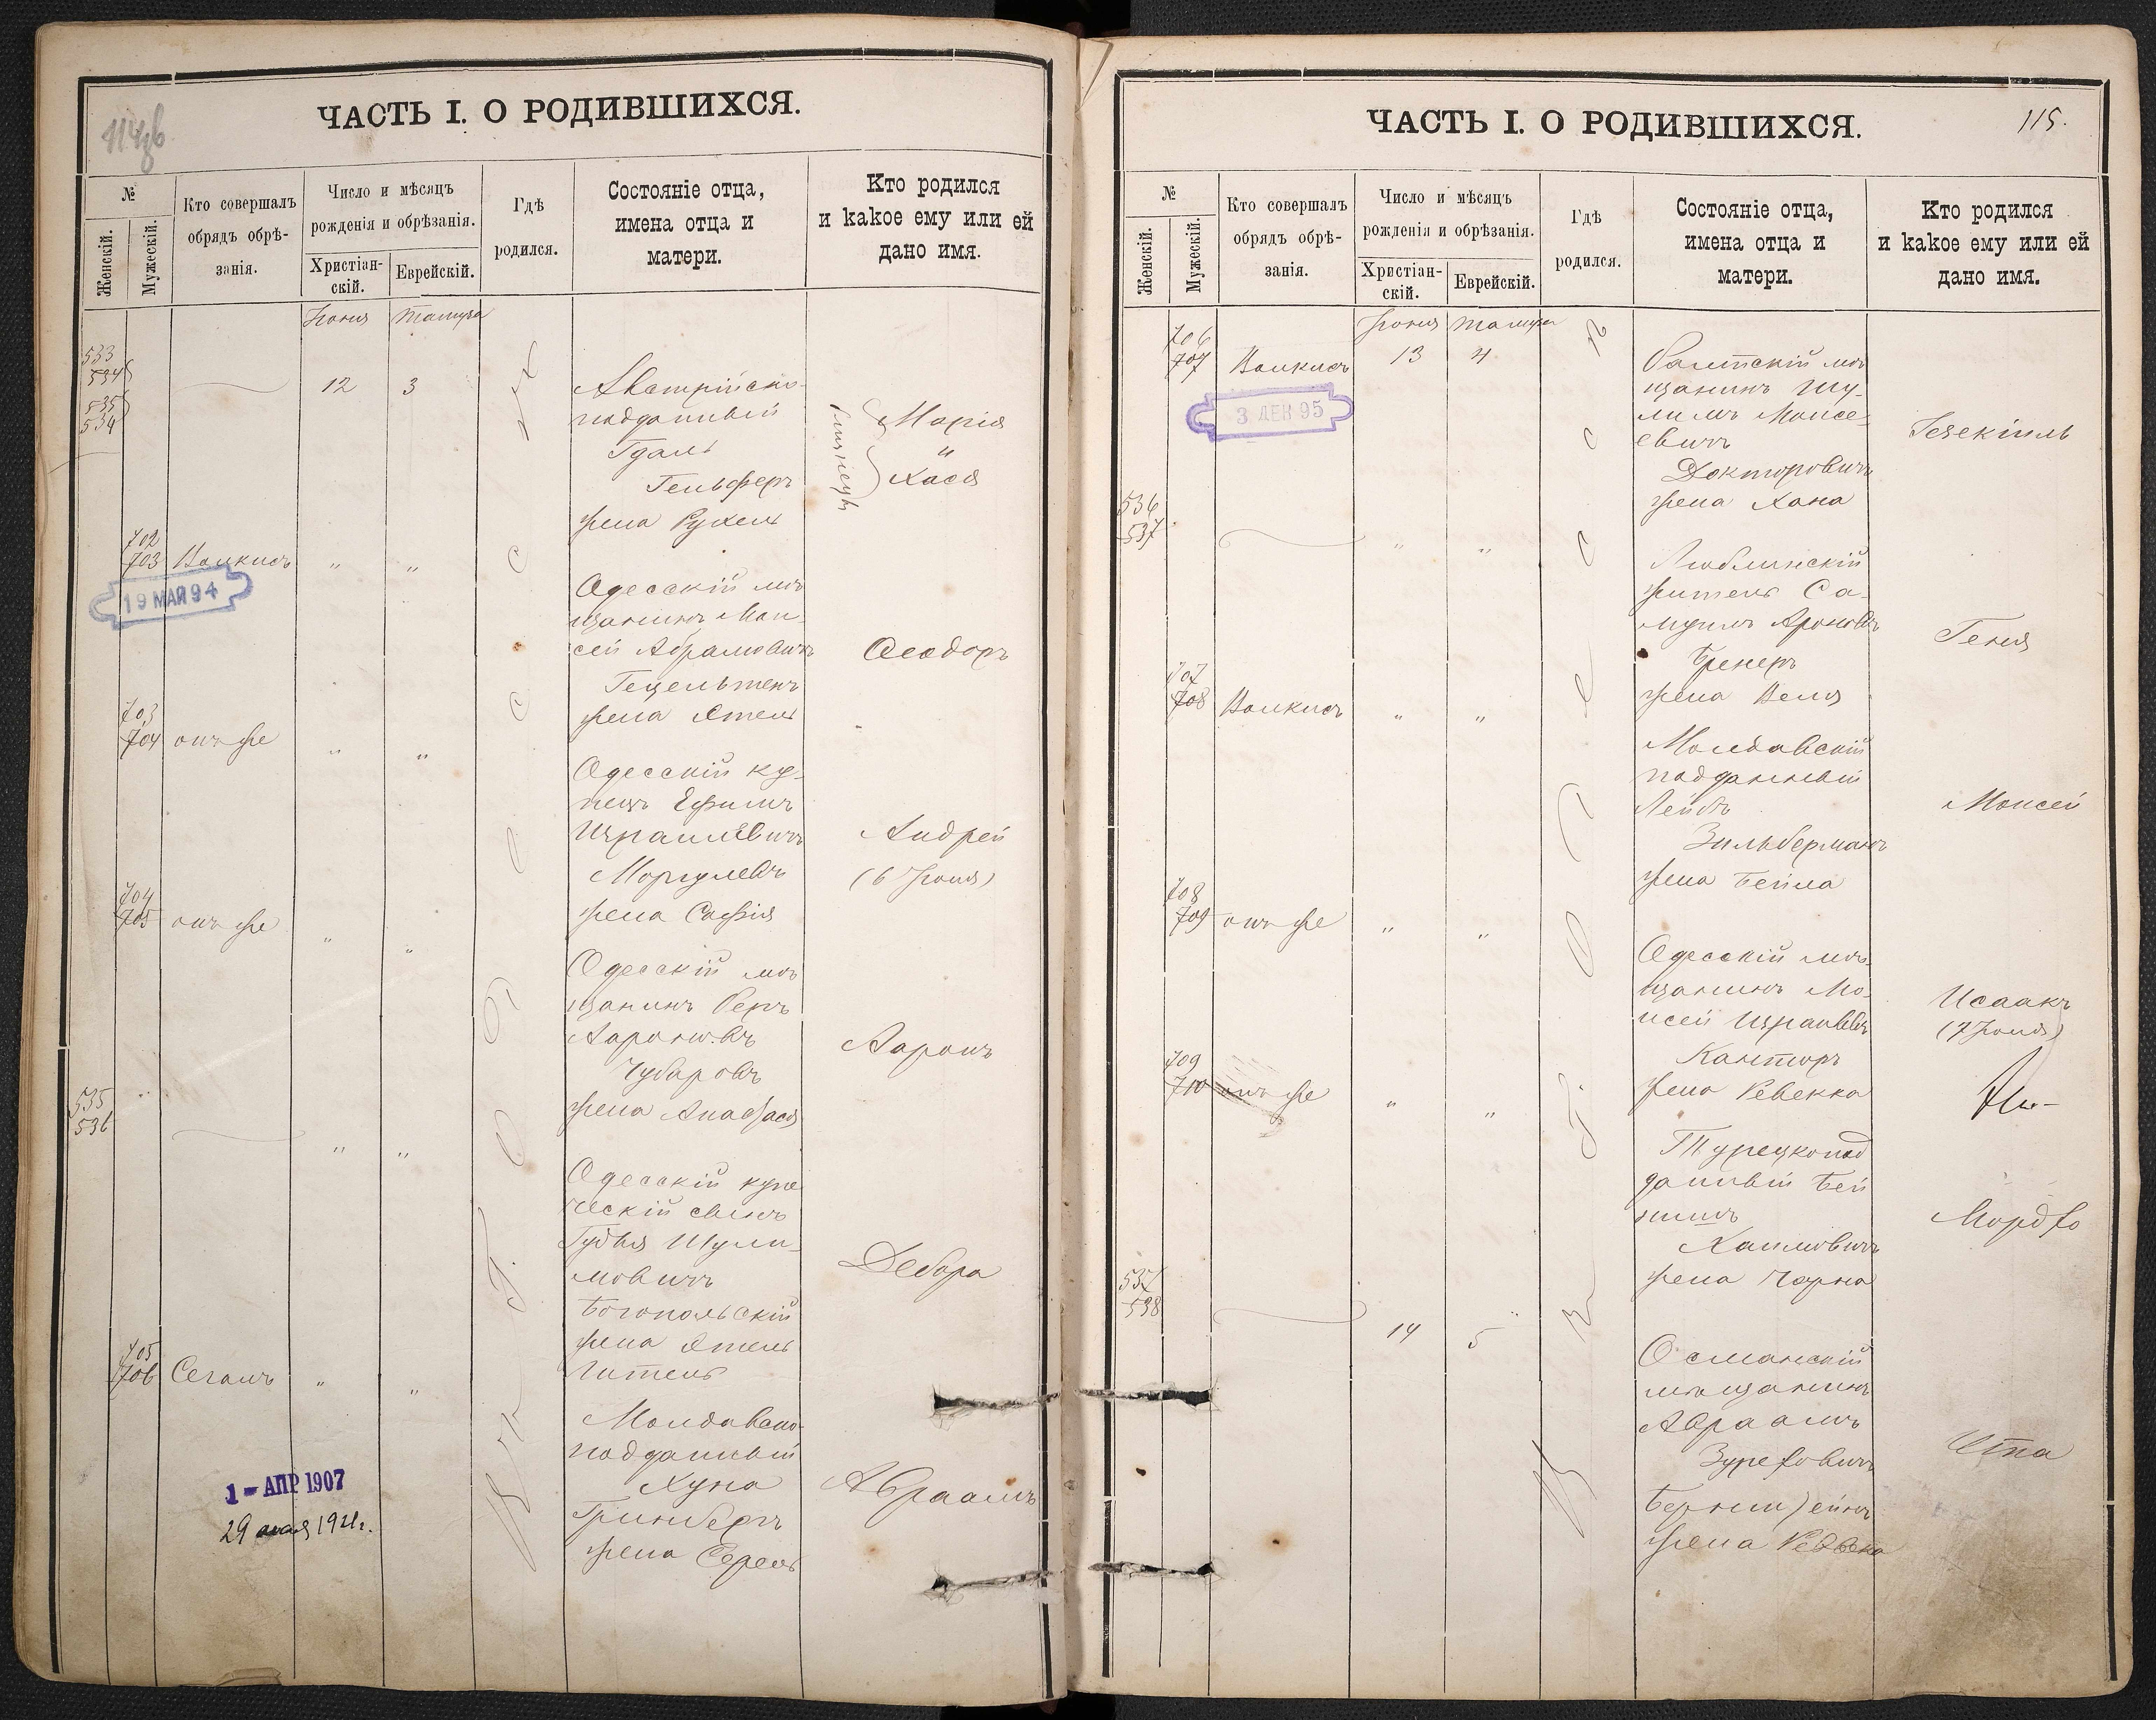 ЧАСТЬ I. О РОДИВШИХСЯ.
№
Женскій.
Мужескій.
Кто совершалъ
обрядъ обрѣ-
занія.
Число и мѣсяцъ
рожденія и обрѣзанія.
Христіан-
скій.
Еврейскій.
Гдѣ
родился.
Состояніе отца,
имена отца и
матери.
Кто родился
и какое ему или ей
дано имя.
Іюня Тамуза
533
534
535
534
12 3
Австрійско-
подданный
Гдаль
Гельферъ
жена Рухель
близнецы
Марія
"
Хася
702
703 " "
19 МАЯ 94
Одесскій мѣ
щанинъ Мои-
сей Абрамовичъ
жена Этель
Ѳеодоръ
703
704 онъ же " "
Одесскій ку-
пецъ Ефимъ
Израилевичъ
Моргулевъ
жена Софія
Андрей
(6 Іюня)
704
705 онъ же " "
Одесскій мѣ
щанинъ Беръ
Аароновъ
Чубаровъ
жена
Ааронъ
535
536 " "
Одесскій купе
ческій сынъ
Гудья Шули-
мовичъ
Богопольскій
жена Этель
Гитель
Дебора
705
706 Сегалъ " "
Молдавско-
подданный
Хуна
Гринбергъ
жена Серель
Авраамъ
1 - АПР 1907
29 мая 1921г.
ЧАСТЬ I. О РОДИВШИХСЯ.
115.
№
Женскій.
Мужескій.
Кто совершалъ
обрядъ обрѣ-
занія.
Число и мѣсяцъ
рожденія и обрѣзанія.
Христіан-
скій.
Еврейскій.
Гдѣ
родился.
Состояніе отца,
имена отца и
матери.
Кто родился
и какое ему или ей
дано имя.
Іюня Тамуза
706
707 13 4
3 ДЕК 95
Балтскій мѣ
щанинъ Шу-
лимъ Моисе-
евичъ
Докторовичъ
жена Хана
Іезекіиль
536
537 " "
Люблинскій
житель Са-
муилъ Ароновъ
Бренеръ
жена Веля
Геня
707
708 " "
Молдавскій
подданный
Лейбъ
Зильберманъ
жена Бейла
Моисей
708
709 онъ же " "
Одесскій мѣ-
щанинъ Мо-
исей Израилевъ
Канторъ
жена Ревекка
Исаакъ
(7 Іюня)
709
710 онъ же " "
Турецкопод
данный Бей
нишъ
Хаимовичъ
жена Чарна
Мордко
537
538
14 5
Османскій
мѣщанинъ
Авраамъ
Бернштейнъ
жена
Итта